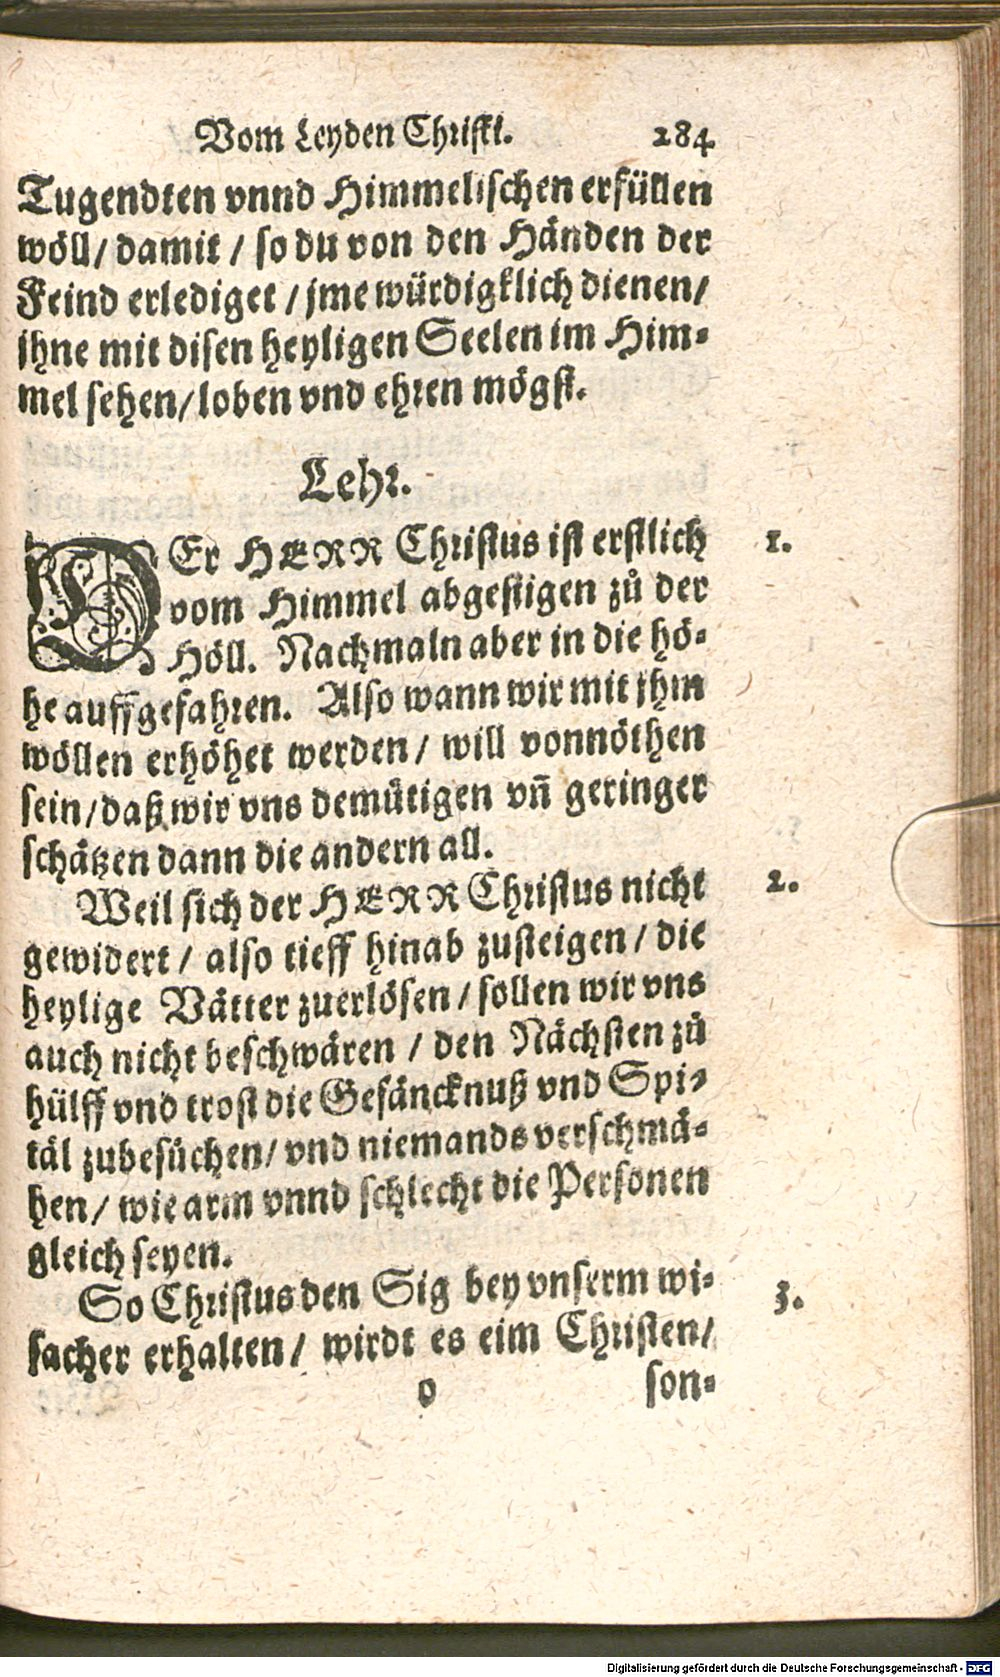 Vom Leyden Christi. 284
Tugendten vnnd Himmelischen erfüllen
wöll/ damit / so du von den Händen der
Feind erlediget / jme würdigklich dienen/
ihne mit disen heyligen Seelen im Him-
mel sehen/ loben vnd ehren mögst.
Lehr.
DEr HERR Christus ist erstlich 1.
vom Himmel abgestigen zů der
Höll. Nachmaln aber in die hö-
he auffgefahren. Also wann wir mit jhm
wöllen erhöhet werden/ will vonnöthen
sein/ daß wir vns demütigen vñ geringer
schätzen dann die andern all.
Weil sich der HERR Christus nicht 2.
gewidert / also tieff hinab zusteigen / die
heylige Vätter zuerlösen / sollen wir vns
auch nicht beschwären / den Nächsten zů
hülff vnd trost die Gefäncknuß vnd Spi-
täl zubesüchen/ vnd niemands verschmä-
hen/ wie arm vnnd schlecht die Personen
gleich seyen.
So Christus den Sig bey vnserm wi- 3.
sacher erhalten/ wirdt es eim Christen/
o son-
Digitalisierung gefördert durch die Deutsche Forschungsgemeinschaft - DFG